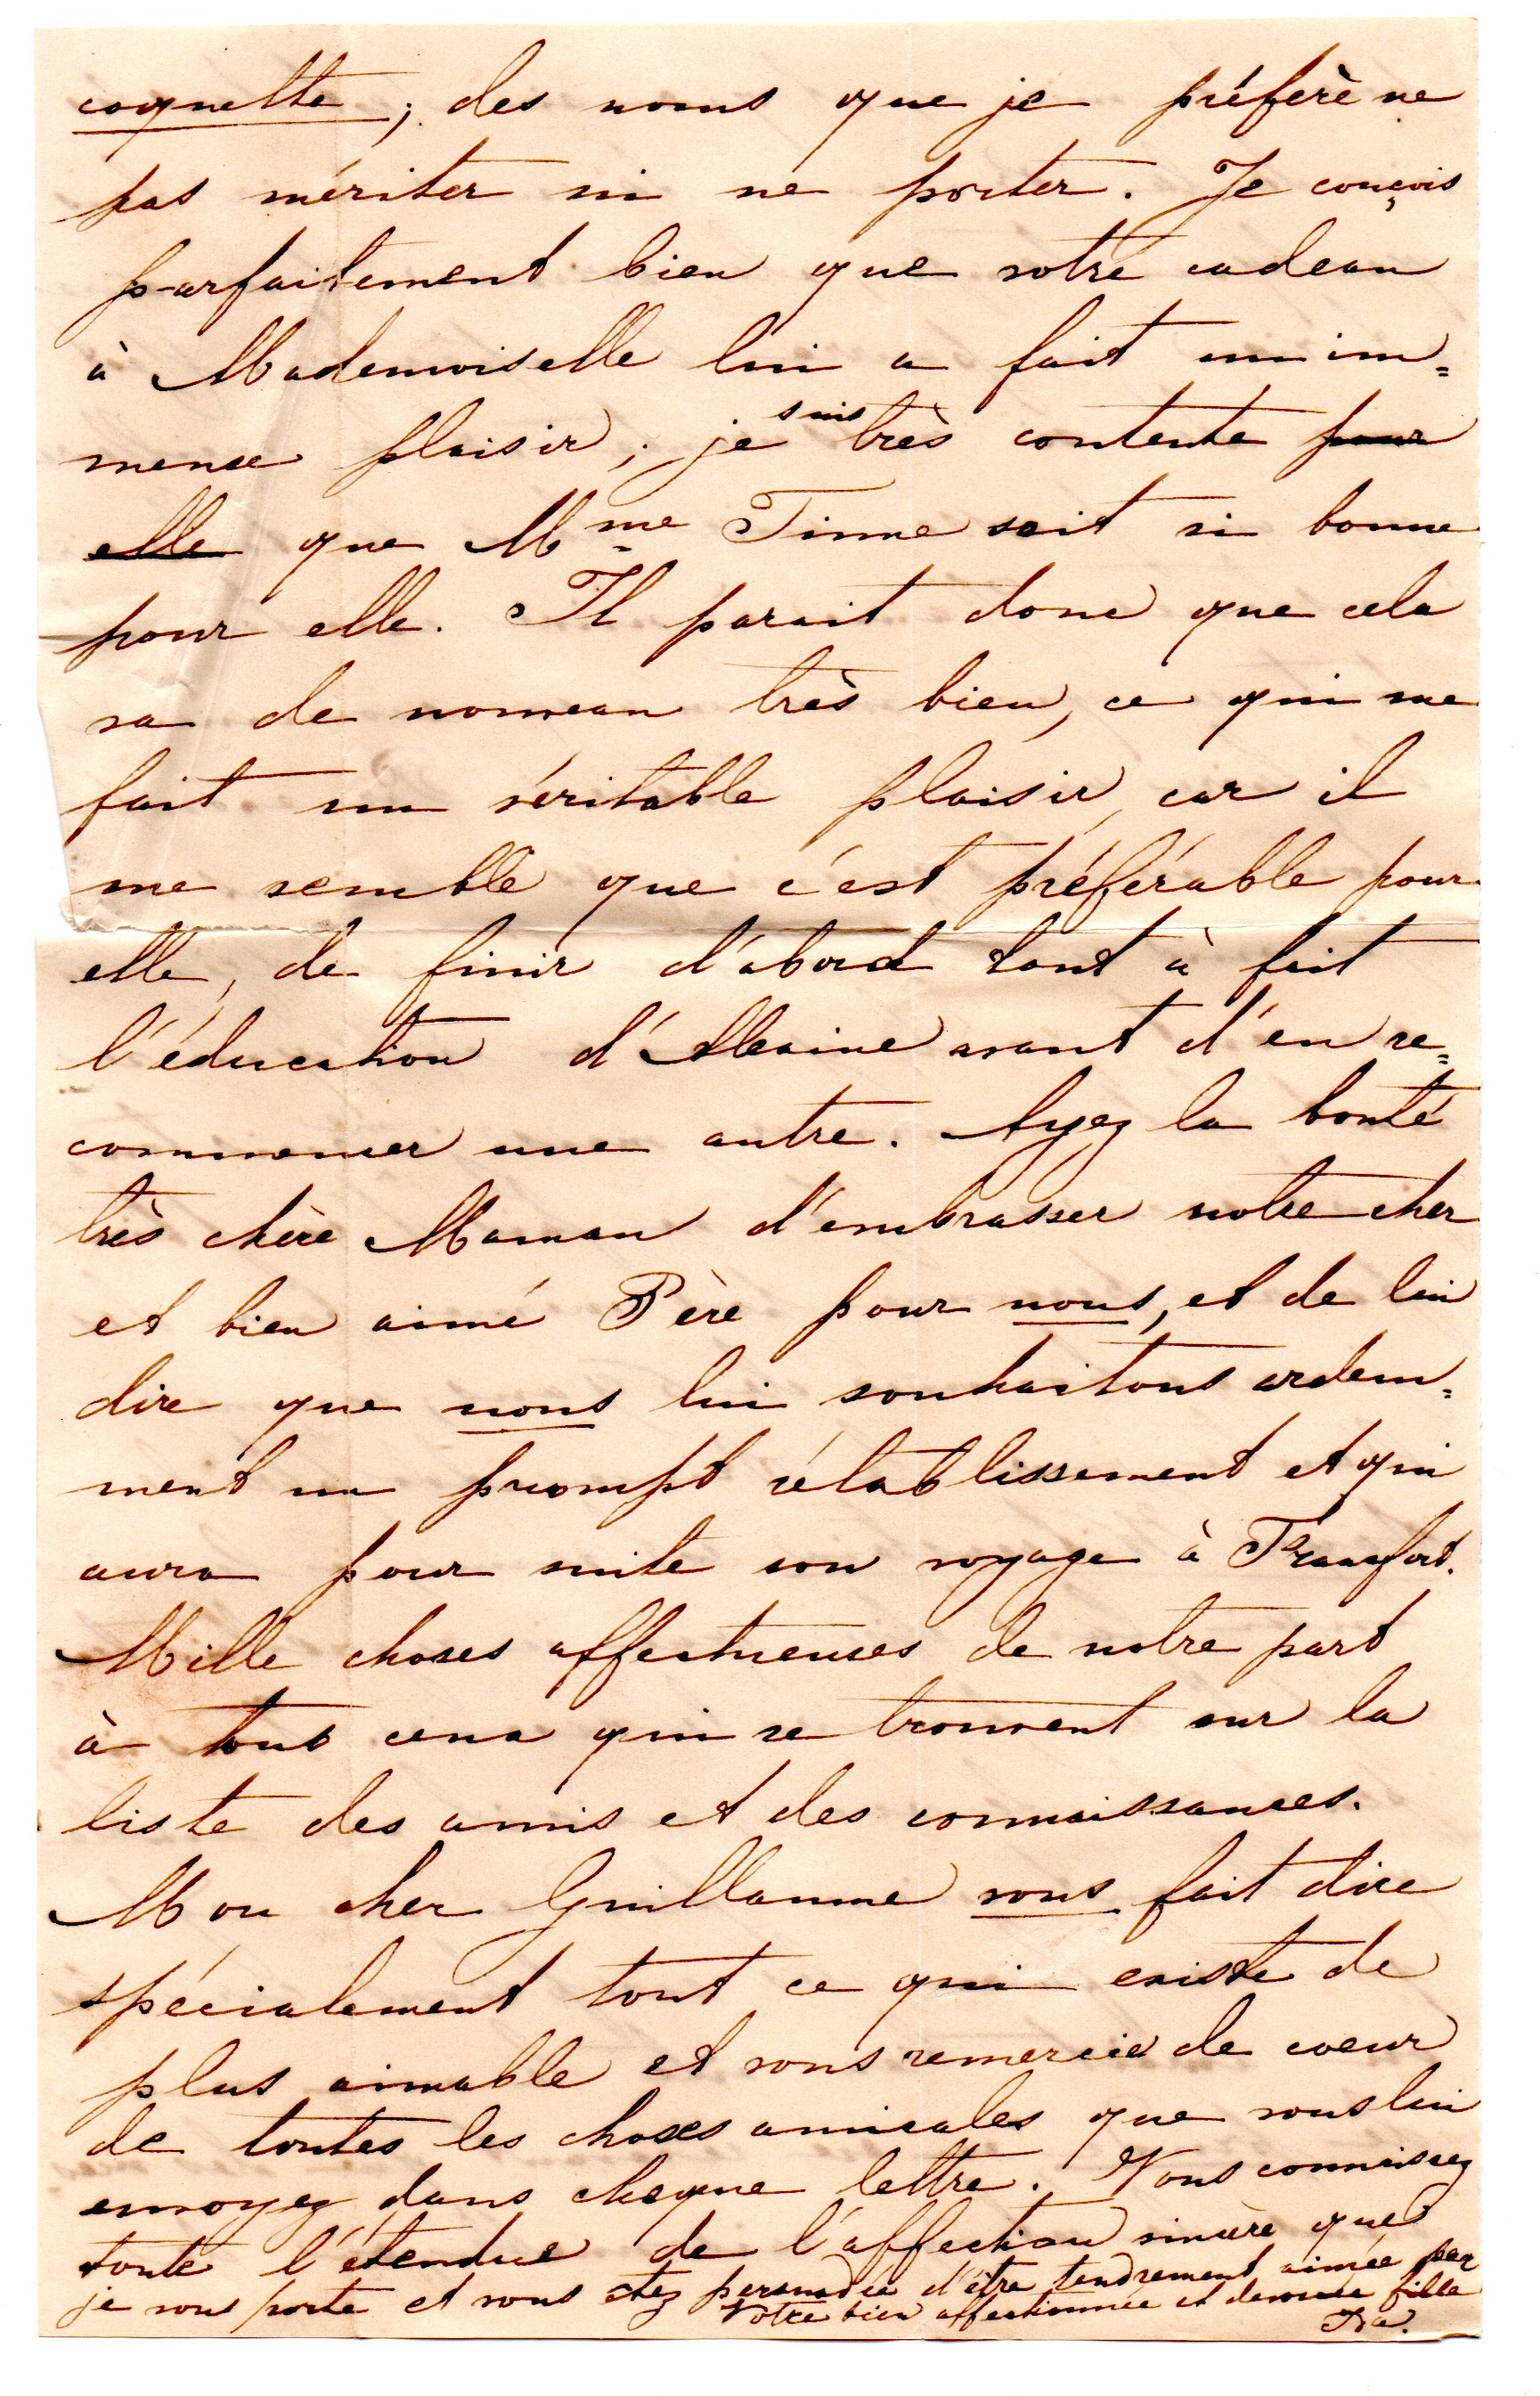 coquette; des noms que je préfère ne
pas mériter ni ne porter. Je conçois
parfaitement bien que votre cadeau
à Mademoiselle lui a fait un im=
mense plaisir; je suis très contente pour
elle que Mme Tinne soit si bonne
pour elle. Il parait donc que cela
va de nouveau très bien, ce qui me
fait un véritable plaisir, car il
me semble que c'est préférable pour
elle, de finir d'abord tout à fait
l'éducation d' avant d'en re=
commencer une autre. Ayez la bonté
très chère Maman d'embrasser notre cher
et bien aimé Père pour nous, et de lui
dire que nous lui souhaitons ardem=
ment un prompt rétablissement et qui
aura pour suite son voyage à Francfort.
Mille choses affectueuses de notre part
à tous ceux qui se trouvent sur la
liste des amis et des connaissances.
Mon cher Guillaume vous fait dire
spécialement tout ce qui existe de
plus aimable et vous remercie de coeur
de toutes les choses amicales que vous lui
envoyez dans chaque lettre. Vous connaissez
toute l'étendue de l'affection sincère que
je vous porte et vous etez persuadée d'être tendrement aimée par
Votre bien affectionnée et devouée fille